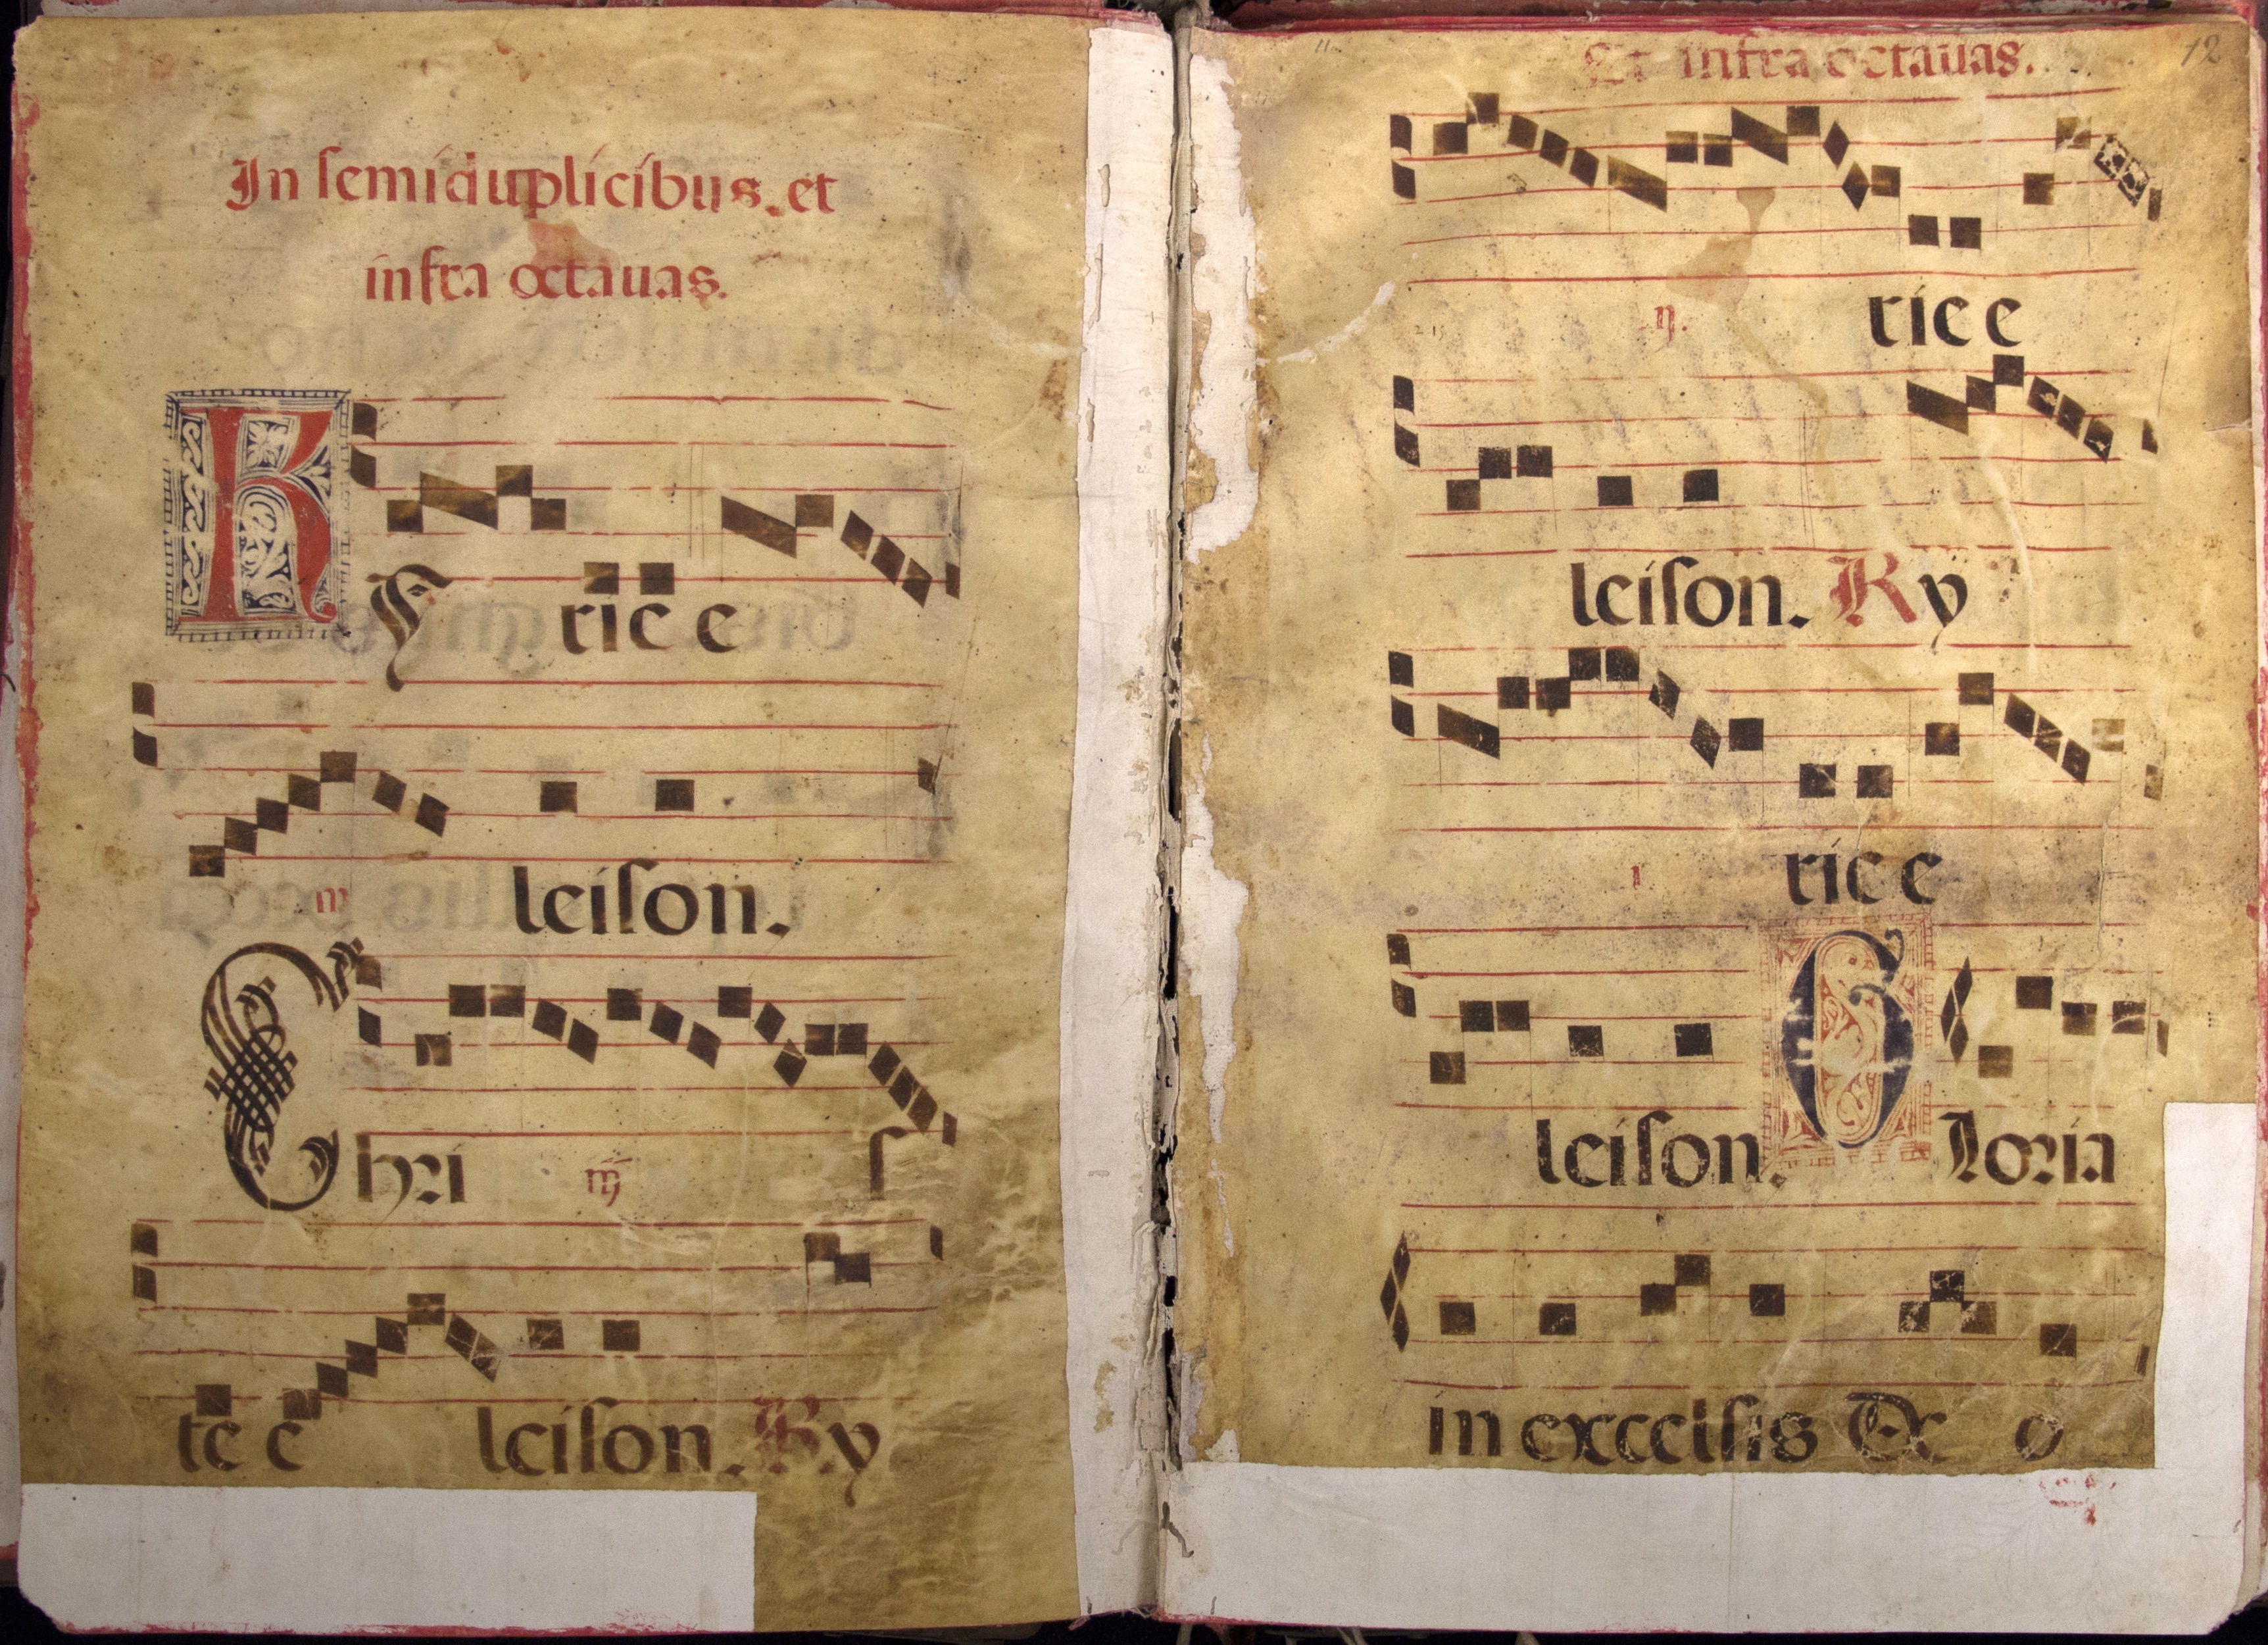 In semiduplicibus. et
infra octauas.
Ky rie e
iij leison.
Chri iij s
te e leison. Ky
Et infra octauas. 12
ij. rie e
leison. Ky
i rie e
leison. Gloria
in excelsis De o